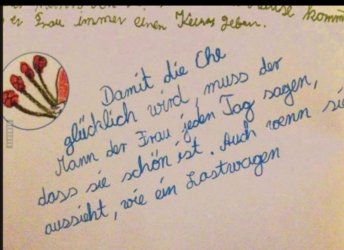 kommt
Frau immer einen Kuss geben.
Damit die Ehe
glücklich wird, muss der
Mann der Frau jeden Tag sagen,
dass sie schön ist. Auch wenn sie
aussieht, wie ein Lastwagen